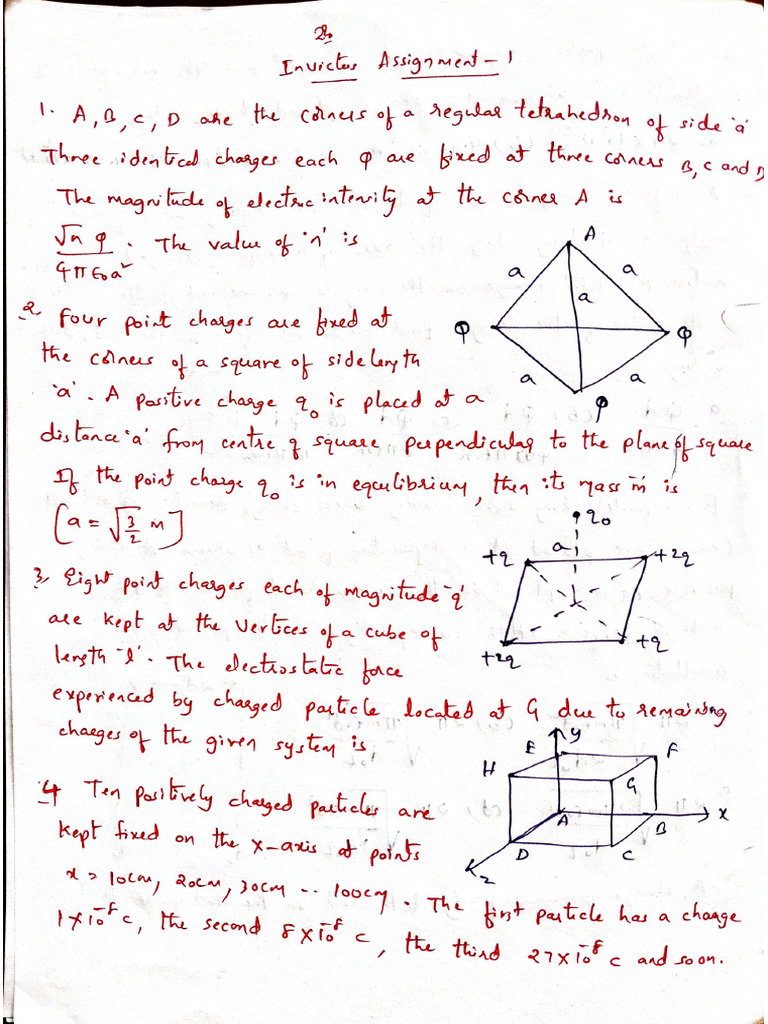 Invictus Assignment - 1
1. A, B, C, D are the corners of a regular tetrahedron of side 'a'
Three identical charges each Q are fixed at three corners B, C and D
The magnitude of electric intensity at the corner A is
√n Q / 4π∈₀a² . The value of 'n' is
A
a
a
a
Q
Q
a
a
Q
2. Four point charges are fixed at
the corners of a square of side length
'a'. A positive charge q₀ is placed at a
distance 'a' from centre of square perpendicular to the plane of square
If the point charge q₀ is in equilibrium, then its mass 'm' is
[a = √3/2 m]
q₀
a
+q
+2q
+2q
+q
3. Eight point charges each of magnitude 'q'
are kept at the vertices of a cube of
length 'l'. The electrostatic force
experienced by charged particle located at G due to remaining
charges of the given system is
y
E
F
H
G
A
B
x
D
C
z
4 Ten positively charged particles are
kept fixed on the x-axis at points
x = 10cm, 20cm, 30cm .. 100cm. The first particle has a charge
1×10⁻⁸ C, the second 8×10⁻⁸ C, the third 27×10⁻⁸ C and so on.